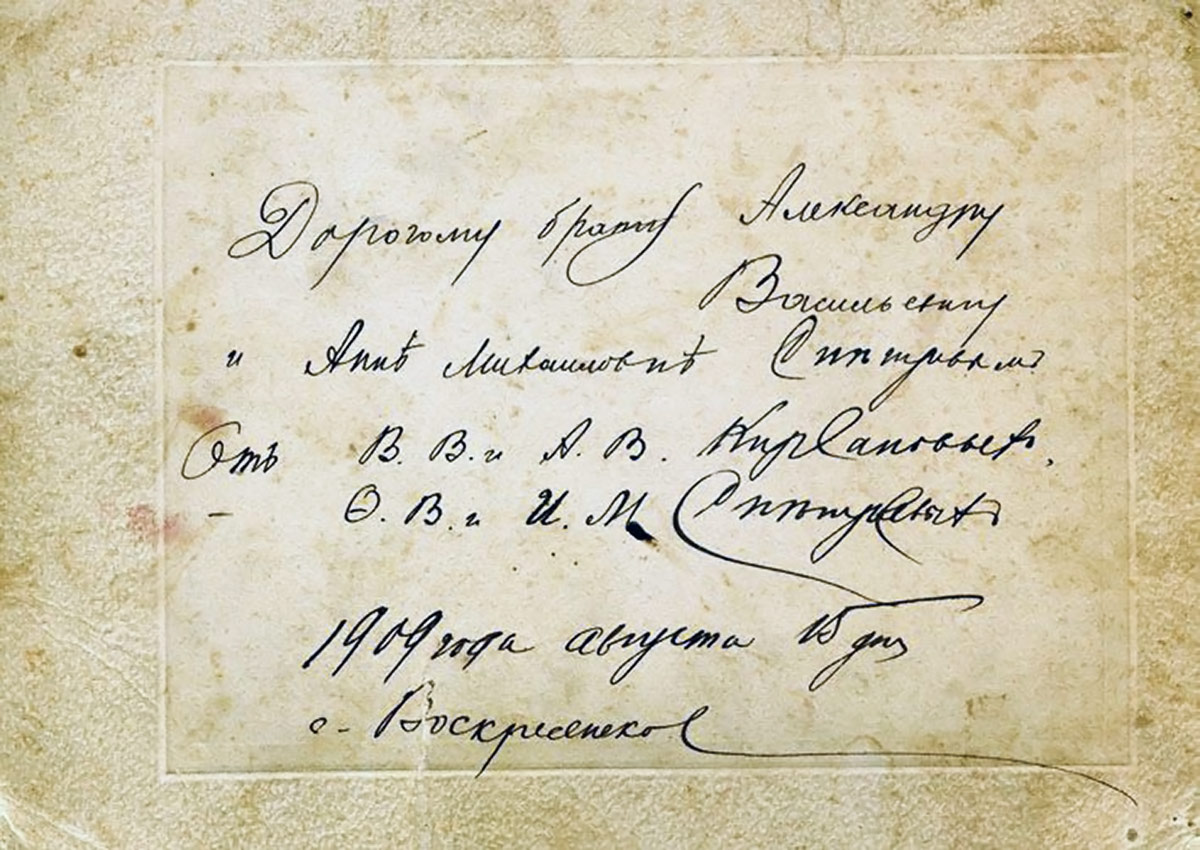 Дорогому брату Александру
Васильевичу
и Аннѣ Михаиловнѣ
Отъ В. В. и А. В. Кирсановыхъ,
– Ѳ. В. и И. М
1909 года августа 15 дня
с. Воскресенское